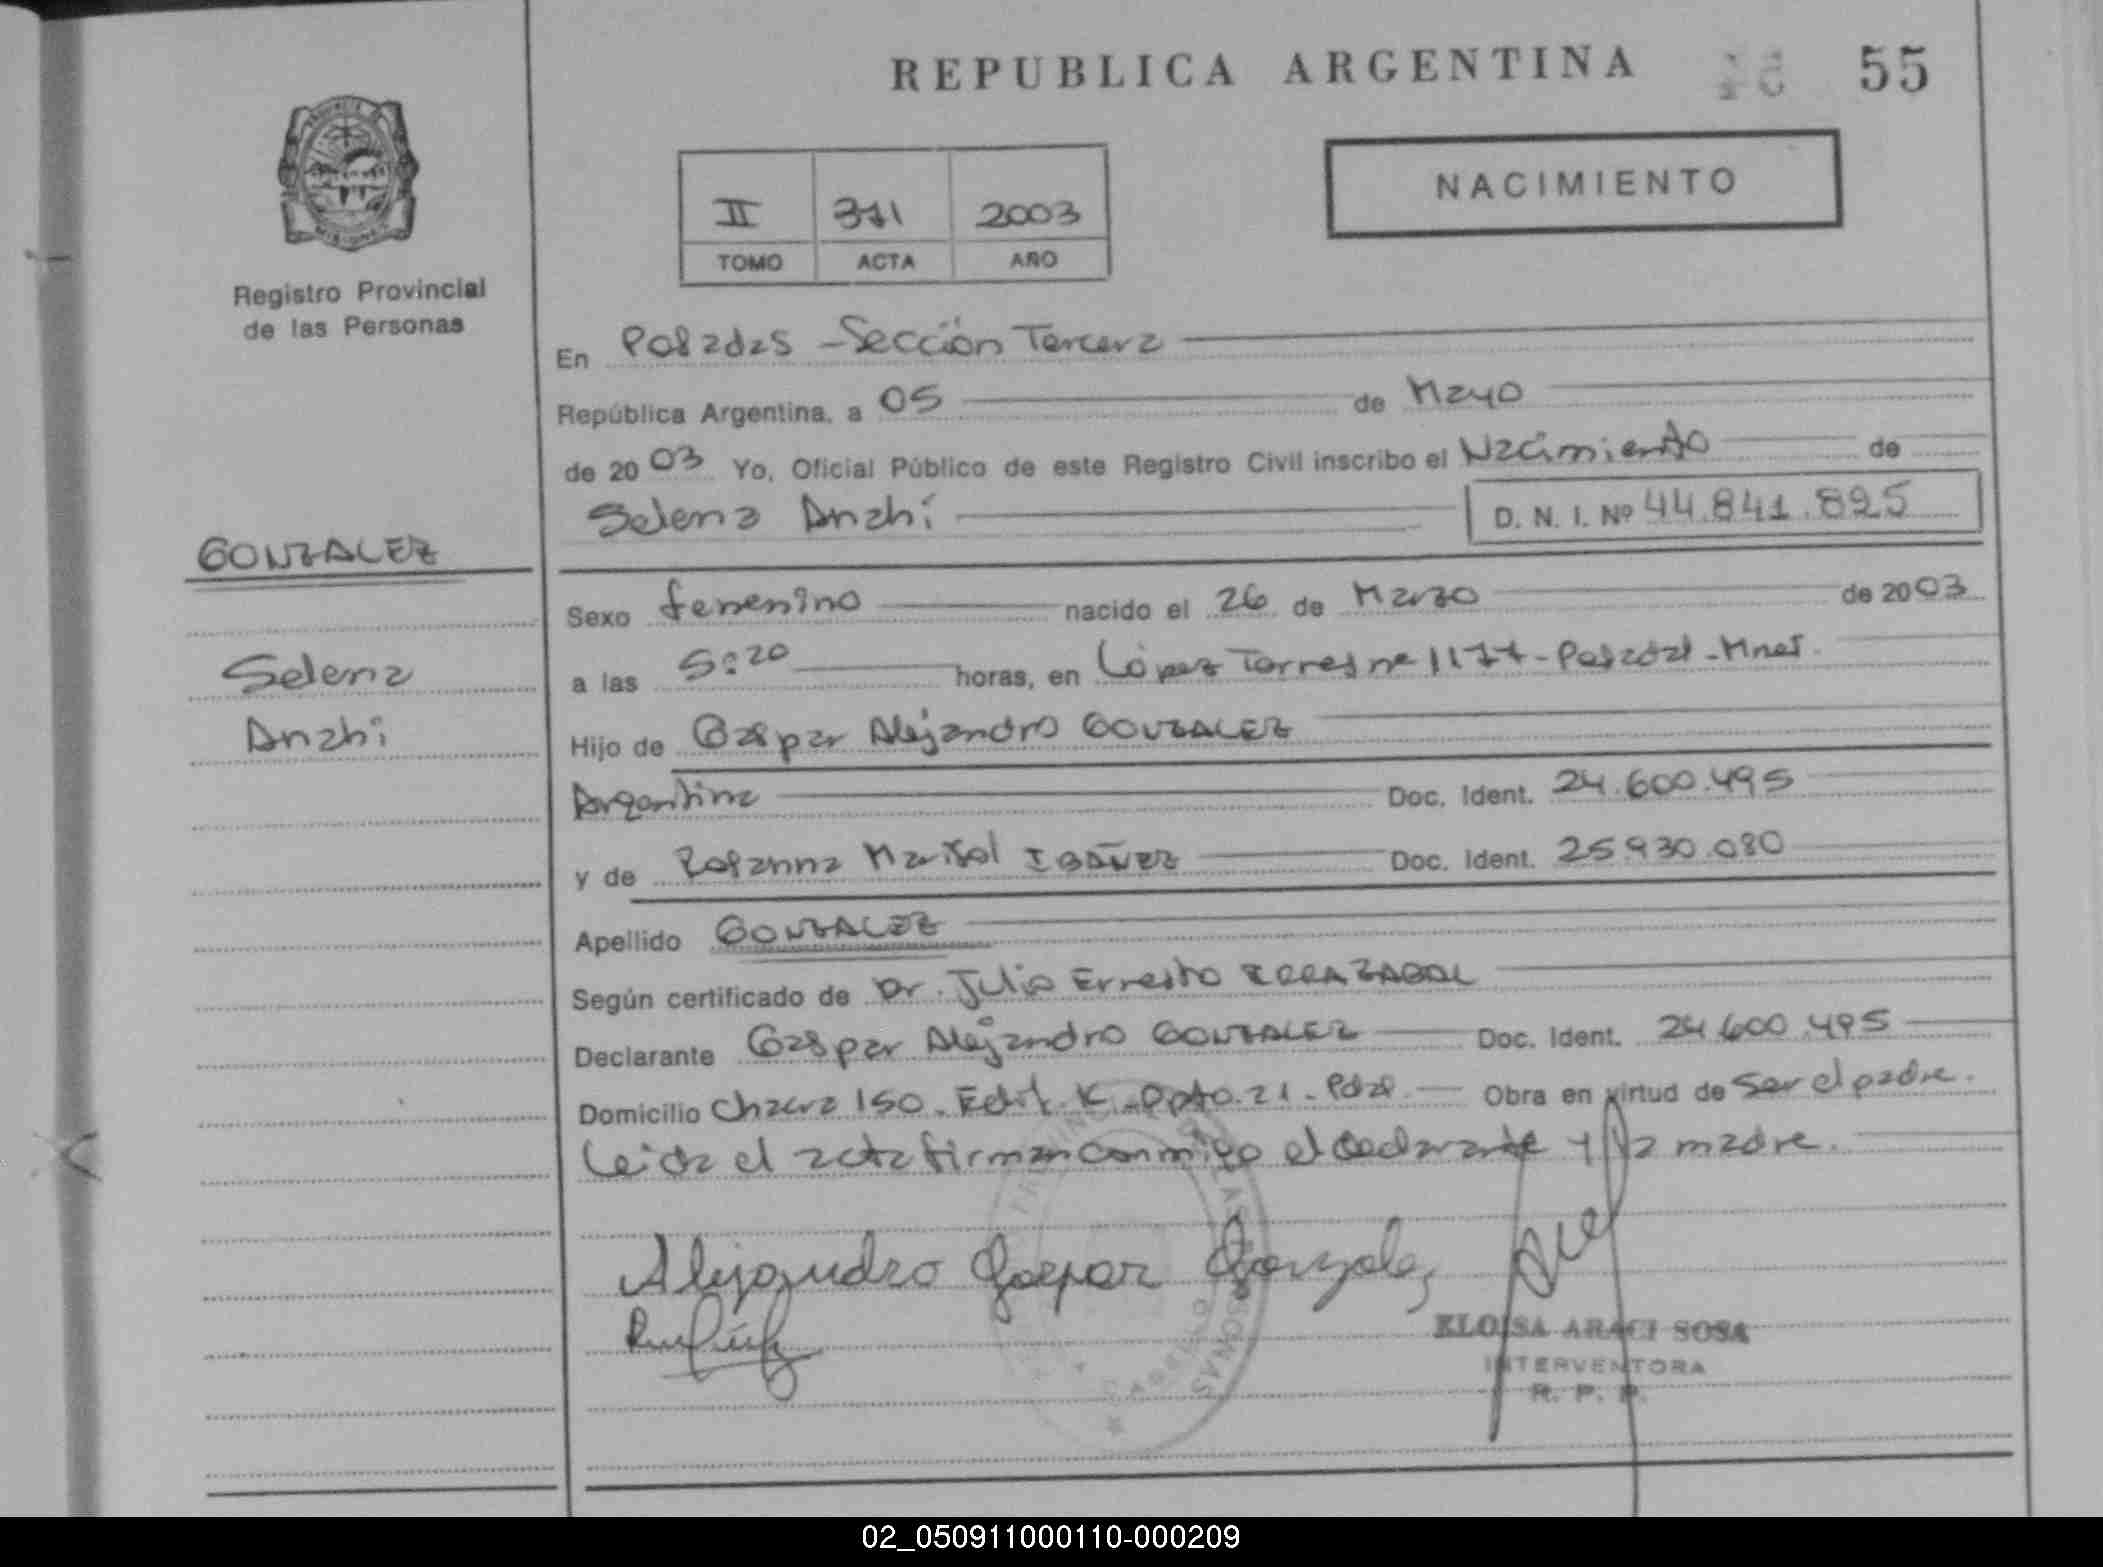 REPUBLICA ARGENTINA 55
NACIMIENTO
II 311 2003
TOMO ACTA AÑO
PROVINCIA DE MISIONES
Registro Provincial
de las Personas
En Posadas - Sección Tercera
República Argentina, a 05 de Mayo
de 2003 Yo, Oficial Público de este Registro Civil inscribo el Nacimiento de
Selena Anahi D. N. I. Nº 44.841.825
GONZALEZ
Selena
Anahi
Sexo femenino nacido el 26 de Marzo de 2003
a las 5:20 horas, en López Torres nº 1177 - Posadas - Mnes.
Hijo de Gaspar Alejandro GONZALEZ
Argentina Doc. Ident. 24.600.495
y de Rosanna Marisol IBAÑEZ Doc. Ident. 25.930.080
Apellido GONZALEZ
Según certificado de Dr. Julio Ernesto IRRAZABAL
Declarante Gaspar Alejandro GONZALEZ Doc. Ident. 24.600.495
Domicilio Chacra 150. Edif. K - Dpto. 21 - Pdas. Obra en virtud de ser el padre.
Leida el acta firman conmigo el declarante y la madre.
Alejandro Gaspar Gonzalez
ELOISA ARACI SOSA
INTERVENTORA
R. P. P.
02_050911000110-000209